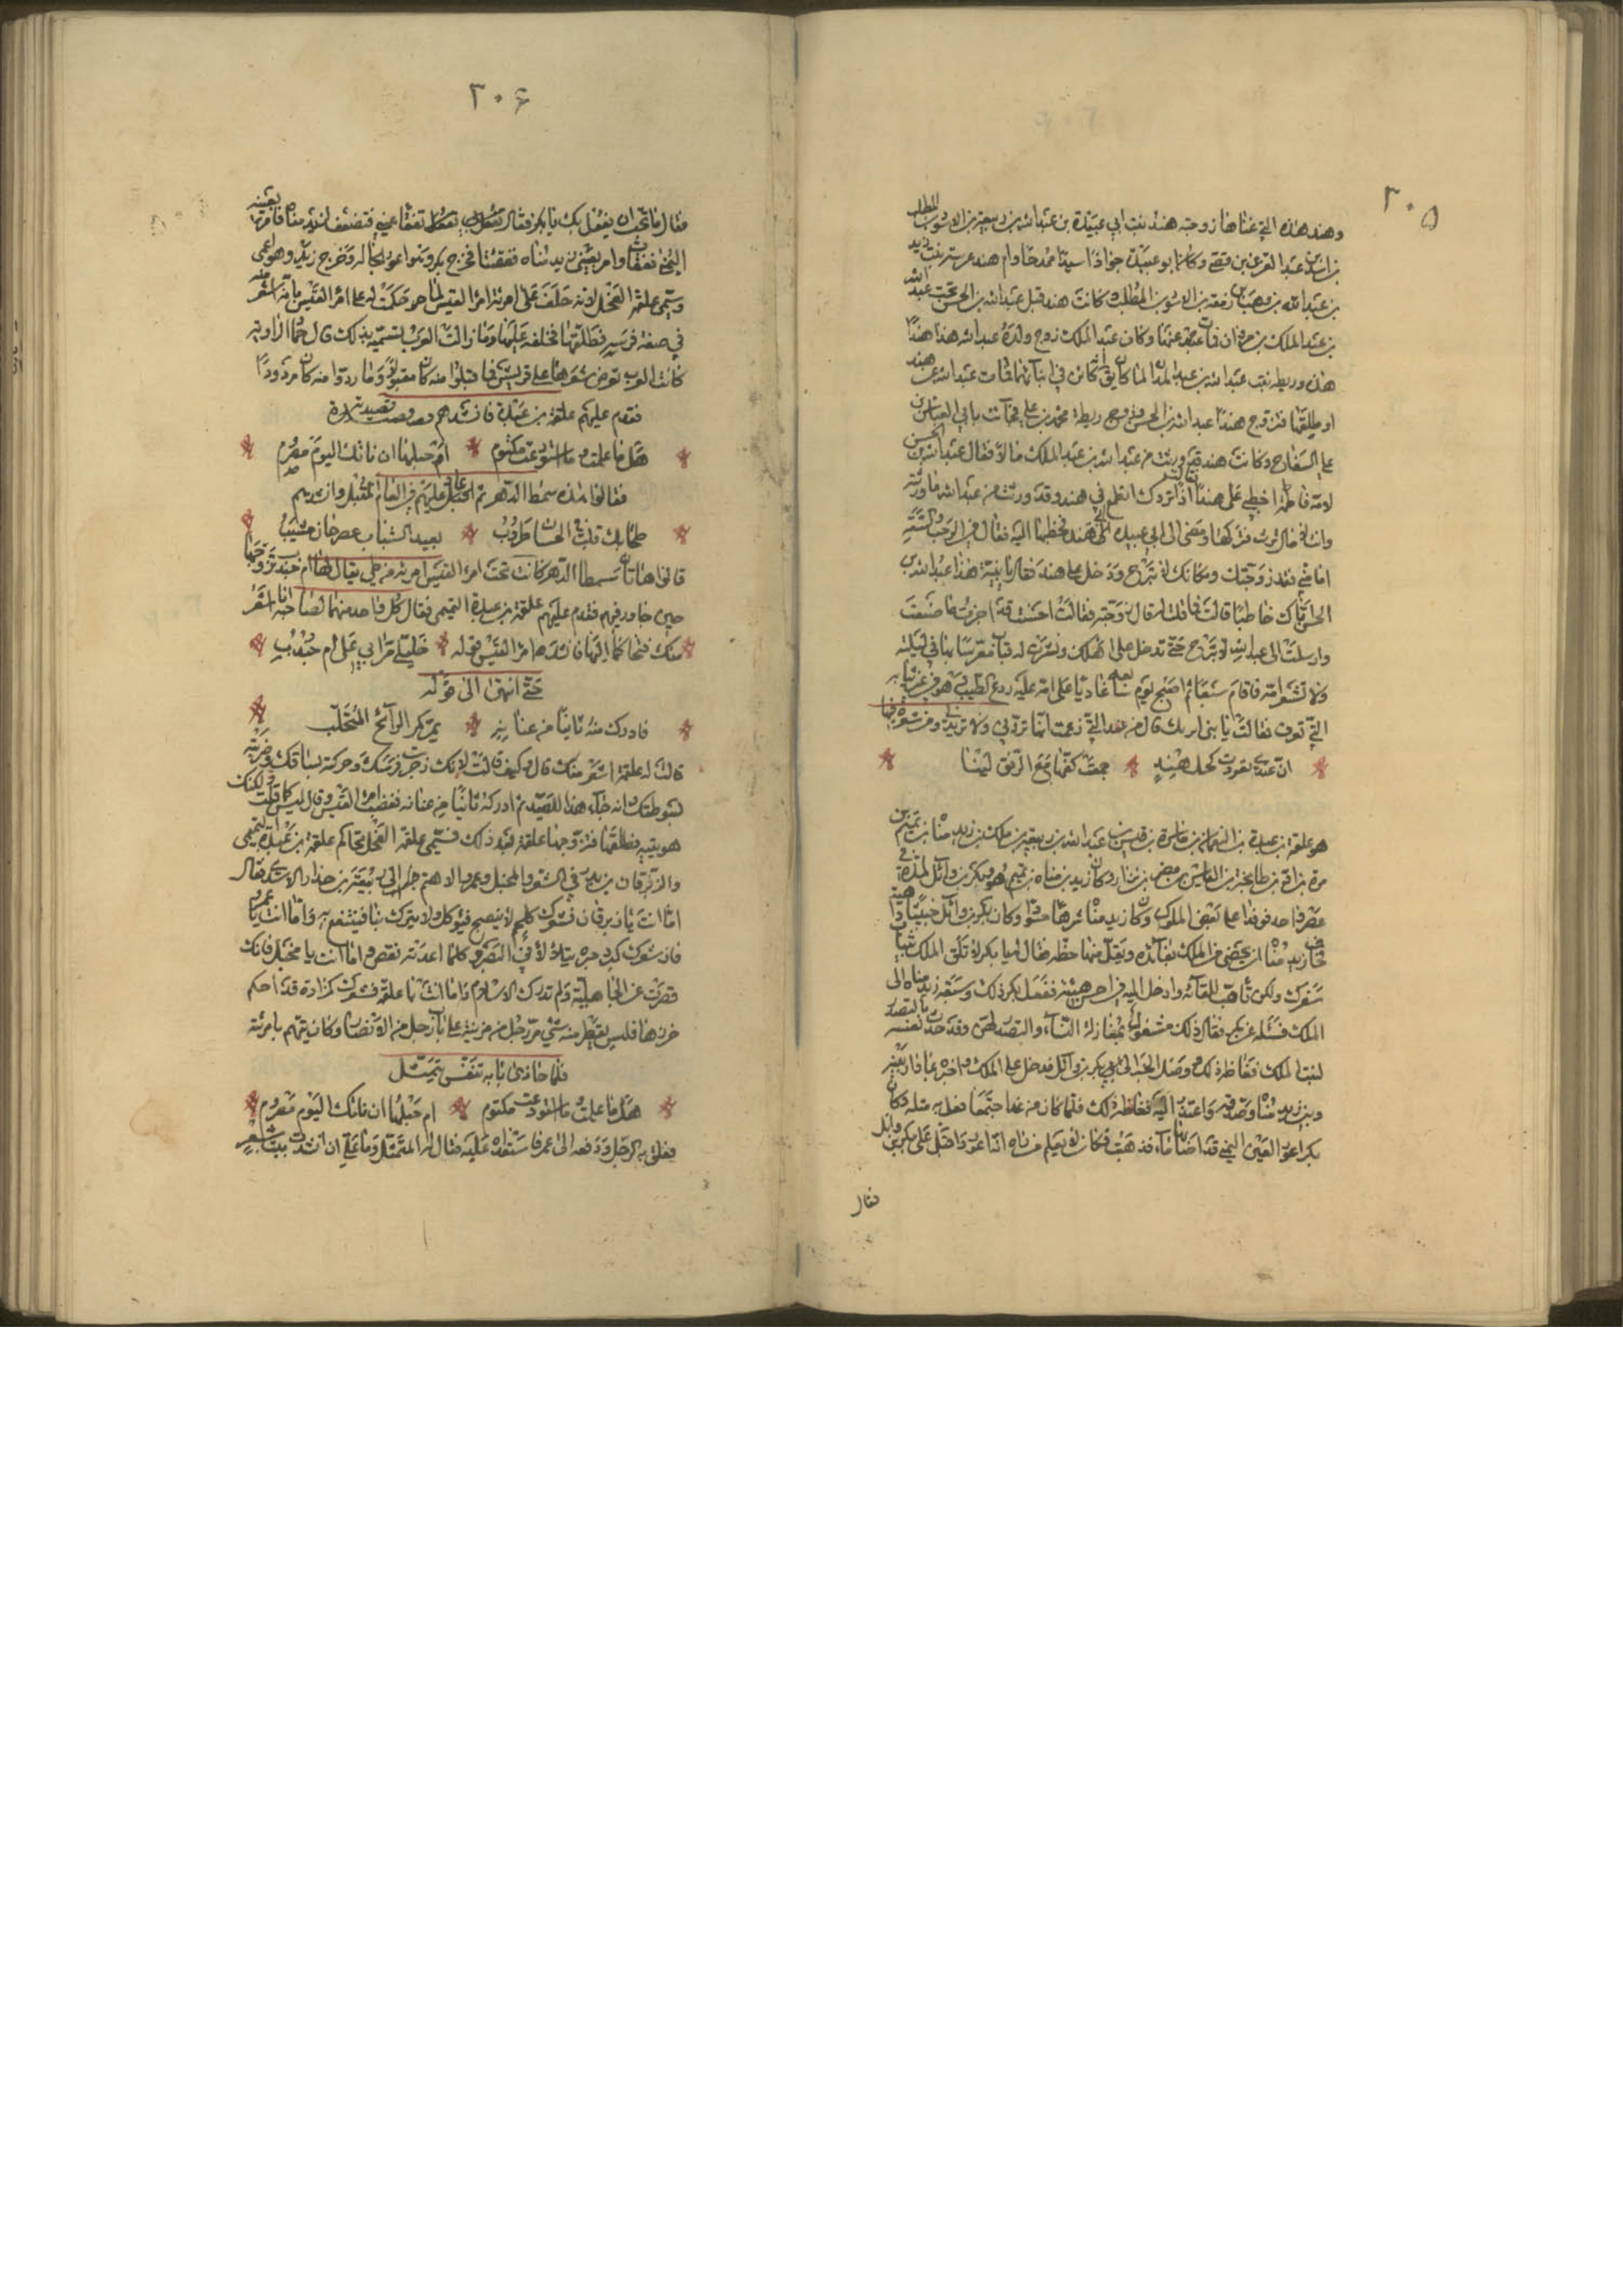 ٢٠٥
وهند هذه التي عناها زوجته هند بنت ابي عبيدة بن عبد الله بن ربيعة بن الاسود بن المطلب
بن اسد بن عبد العزى بن قصي وكان ابو عبيدة جوادًا سيدًا ممدحًا وام هند قريبة بنت يزيد
بن عبد الله بن وهب بن زمعة بن الاسود بن المطلب وكانت هند قبل عبد الله بن الحسن تحت عبد الله
بن عبد الملك بن مروان فمات عنها وكان عبد الملك زوج ولده عبد الله هذا هندًا
هذه وريطه بنت عبد الله بن عبد المدان لما كان يقال انه كائن في ابنائهما فمات عبد الله عن هند
او طلقها فتزوج هندًا عبد الله بن الحسن وتزوج ريطة محمد بن علي فجاءت بابي العباس
السفاح وكانت هند قد ورثت من عبد الله بن عبد الملك مالًا فقال عبد الله بن الحسن
لامه فاطمة اخطبي علي هندًا فقالت اذًا تردك اتطمع في هند وقد ورثت من عبد الله ما ورثته
وانت لا مال لك فتركها ومضى الى ابي عبيدة ابي هند فخطبها اليه فقال في الرحب والسعة
اما مني فقد زوجتك ومكانك لا تبرح ودخل على هند فقال يا بنية هذا عبد الله بن
الحسن اتاك خاطبًا قالت فما قلت له قال زوجته فقالت احسنت قد اجزت ما صنعت
وارسلت الى عبد الله لا تبرح حتى تدخل على اهلك وتزينت له فبات معرسًا بها في ليلته
ولا تشعر امه فاقام سبعًا ثم اصبح يوم سابعه غاديًا على امه عليه ردع الطيب وهو في غير ثيابه
التي تعرف فقالت يا بني من اين لك قال من عند التي زعمت انها تردني ولا تريدني ومن شعره فيها
ان عيني تعودت كحل هند جمعت كفها مع الرفق لينا
هو علقمة بن عبدة بن النعمان بن ناشرة بن قيس بن عبيد الله بن ربيعة بن ملك بن زيد مناة بن تميم بن
مرة بن اد بن طابخة بن الياس بن مضر بن نزار وكان زيد مناة بن تميم هو وبكر بن وائل لدة في
عصر واحد فوفدا على بعض الملوك وكان زيد مناة شرهًا حسودًا وكان بكر بن وائل خبيثًا داهية
فخاف زيد مناة ان يحظى من الملك بفائدة ويقل منها حظه فقال له يا بكر لا تلق الملك بثياب
سفرك ولكن تاهب للقائه وادخل اليه في احسن هيئة ففعل بكر ذلك وسبقه زيد مناة الى
الملك فسئله عن بكر فقال ذلك مشغول بمغازلة النساء والتصدي لهن وقد حدث نفسه بالتصدي
لبنت الملك فغاظه ذلك ووصل الخبر الى بكر بن وائل فدخل على الملك فاخبره بما دار بينه
وبين زيد مناة وصدقه واعتذر اليه فغاظه ذلك فلما كان من غد اجتمعا فعل به مثله وكان
بكر اعور العين اليمنى قد اصابها ماء فذهبت فكان لا يعلم من راه انه اعور فاقبل على بكر بن وائل
فقال
٢٠٦
فقال ما تحب ان يفعل بك يا بكر فقال تفقا عيني اليمنى وتضعف لزيد مناة فامر بعينه
اليمنى ففقئت وامر بعيني زيد مناة ففقئتا فخرج بكر وهو اعور بحاله وخرج زيد وهو اعمى
وسمي علقمة الفحل لانه خلف على امرئة امرئ القيس لما حكمت له على امرئ القيس بانه اشعر منه
في صفة فرسه فطلقها فخلفه عليها وما زالت العرب تسميه بذلك قال حماد الراوية
كانت العرب تعرض شعرها على قريش فما قبلوا منه كان مقبولًا وما ردوا منه كان مردودًا
فقدم عليهم علقمة بن عبدة فانشدهم قصيدته
هل ما علمت وما استودعت مكتوم ام حبلها ان نائتك اليوم مصروم
فقالوا هذه سمط الدهر ثم عاد عليهم في العام المقبل وانشدهم
طحا بك قلب في الحسان طروب بعيد الشباب عصر حان مشيب
قالوا هاتان سمطا الدهر كانت تحت امرء القيس امرئة من طي يقال لها ام جندب تزوجها
حين جاور فيهم فقدم عليهم علقمة بن عبدة التميمي فقال كل واحد منهما لصاحبه انا اشعر
منك فتحاكما اليها فانشدها امرؤ القيس قوله خليلي مرا بي على ام جندب
حتى انتهى الى قوله
فادرك منه ثانيًا من عنانه يمر كمر الرائح المتحلب
قالت له علقمة اشعر منك قال وكيف قالت لانك زجرت فرسك وحركته بساقك وضربته
بسوطك وانه جاء هذا للصيد ثم ادركه ثانيًا من عنانه فغضب امرؤ القيس وقال ليس كما قلت ولكنك
هويتيه فطلقها فتزوجها علقمة بعد ذلك فسمي علقمة الفحل تحاكم علقمة بن عبدة التميمي
والزبرقان بن بدر في الشعر والمخبل وعمرو بن الاهتم الى ربيعة بن حذار الاسدي فقال
اما انت يا زبرقان فشعرك كلحم لا ينضج فيؤكل ولا يترك نيا فينتفع به واما انت يا عمرو
فان شعرك كبرد حبرة يتلالأ في البصر وكلما اعدته نقص واما انت يا مخبل فانك
قصرت عن الجاهلية ولم تدرك الاسلام واما انت يا علقمة فشعرك كمزادة قد احكم
خرزها فليس يقطر منه شيء مر رجل من مزينة على باب رجل من الانصار وكان يتهم بامرئته
فلما حاذى بابه تنفس وتمثل
هل ما علمت وما استودعت مكتوم ام حبلها ان نائتك اليوم مصروم
فعلق به الرجل ودفعه الى عمر فاستعداه عليه فقال له المتمثل وما علي ان انشدت بيت شعر